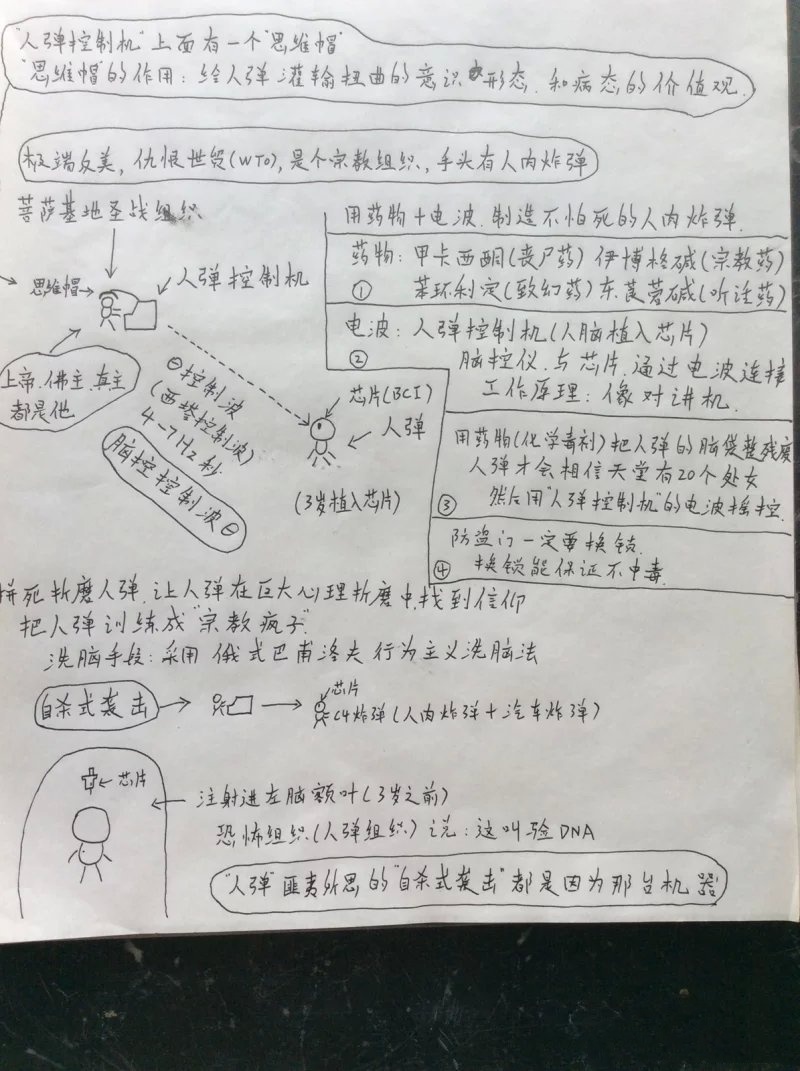 "人弹控制机"上面有一个"思维帽"
"思维帽"的作用：给人弹灌输扭曲的意识形态．和病态的价值观．
极端反美，仇恨世贸(WTO)，是个宗教组织，手头有人肉炸弹
菩萨基地圣战组织
思维帽→
人弹控制机
上帝．佛主．真主
都是他
⊖控制波
(西塔控制波)
4-7Hz秒
脑控控制波⊖
芯片(BCI)
人弹
(3岁植入芯片)
用药物+电波．制造不怕死的人肉炸弹．
药物：甲卡西酮(丧尸药) 伊博格碱(宗教药)
① 苯环利定(致幻药) 东莨菪碱(听话药)
电波：人弹控制机(人脑植入芯片)
② 脑控仪．与芯片．通过电波连接
工作原理：像对讲机．
用药物(化学毒剂)把人弹的脑袋整残废
人弹才会相信天堂有20个处女
③ 然后用"人弹控制机"的电波摇控．
防盗门一定要换锁．
④ 换锁能保证不中毒．
拼死折磨人弹．让人弹在巨大心理折磨中．找到信仰
把人弹训练成"宗教疯子"
洗脑手段：采用俄式巴甫洛夫行为主义洗脑法
自杀式袭击
芯片
C4炸弹(人肉炸弹+汽车炸弹)
芯片
注射进左脑额叶(3岁之前)
恐怖组织(人弹组织)说：这叫验DNA
"人弹"匪夷所思的"自杀式袭击"都是因为那台机器